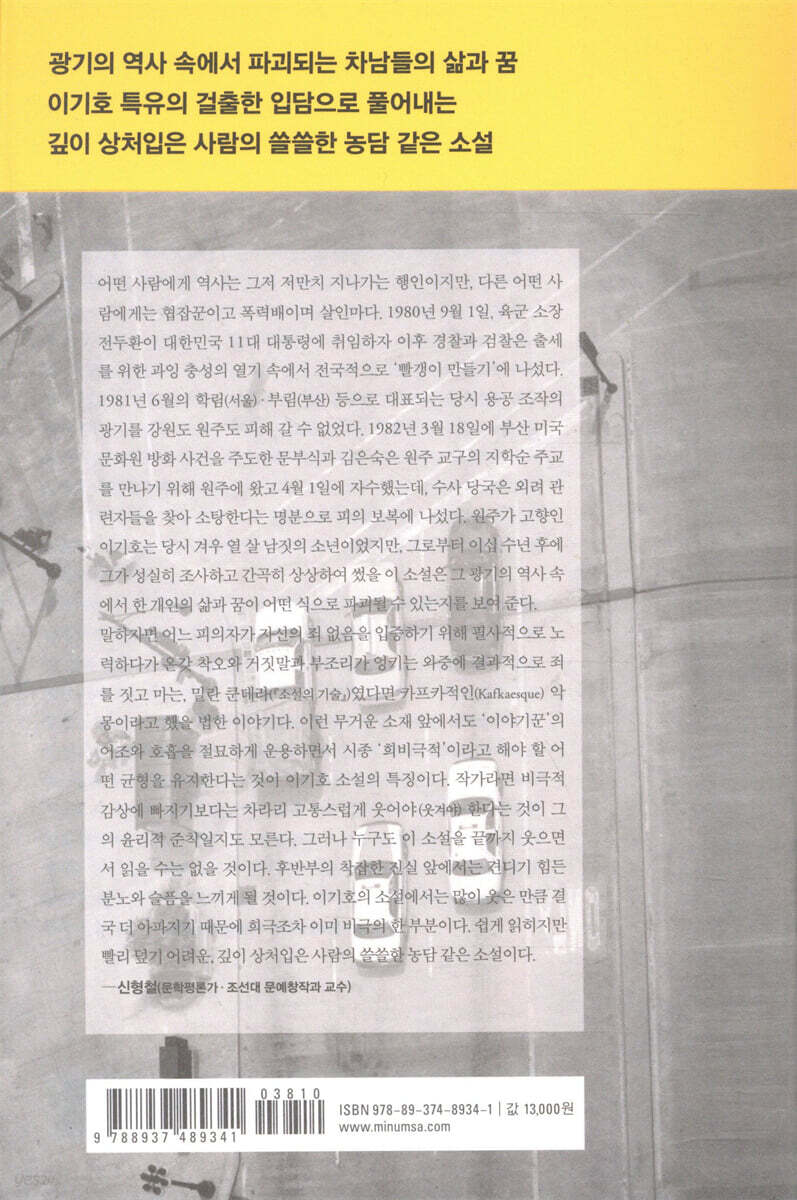 광기의 역사 속에서 파괴되는 차남들의 삶과 꿈
이기호 특유의 걸출한 입담으로 풀어내는
깊이 상처입은 사람의 쓸쓸한 농담 같은 소설
어떤 사람에게 역사는 그저 저만치 지나가는 행인이지만, 다른 어떤 사
람에게는 협잡꾼이고 폭력배이며 살인마다. 1980년 9월 1일, 육군 소장
전두환이 대한민국 11대 대통령에 취임하자 이후 경찰과 검찰은 출세
를 위한 과잉 충성의 열기 속에서 전국적으로 ‘빨갱이 만들기’에 나섰다.
1981년 6월의 학림(서울)·부림(부산) 등으로 대표되는 당시 용공 조작의
광기를 강원도 원주도 피해 갈 수 없었다. 1982년 3월 18일에 부산 미국
문화원 방화 사건을 주도한 문부식과 김은숙은 원주 교구의 지학순 주교
를 만나기 위해 원주에 왔고 4월 1일에 자수했는데, 수사 당국은 외려 관
련자들을 찾아 소탕한다는 명분으로 피의 보복에 나섰다. 원주가 고향인
이기호는 당시 겨우 열 살 남짓의 소년이었지만, 그로부터 이십 수년 후에
그가 성실히 조사하고 간곡히 상상하여 썼을 이 소설은 그 광기의 역사 속
에서 한 개인의 삶과 꿈이 어떤 식으로 파괴될 수 있는지를 보여 준다.
말하자면 어느 피의자가 자신의 죄 없음을 입증하기 위해 필사적으로 노
력하다가 온갖 착오와 거짓말과 부조리가 엉키는 와중에 결과적으로 죄
를 짓고 마는, 밀란 쿤데라(『소설의 기술』)였다면 카프카적인(Kafkaesque) 악
몽이라고 했을 법한 이야기다. 이런 무거운 소재 앞에서도 ‘이야기꾼’의
어조와 호흡을 절묘하게 운용하면서 시종 ‘희비극적’이라고 해야 할 어
떤 균형을 유지한다는 것이 이기호 소설의 특징이다. 작가라면 비극적
감상에 빠지기보다는 차라리 고통스럽게 웃어야(웃겨야) 한다는 것이 그
의 윤리적 준칙일지도 모른다. 그러나 누구도 이 소설을 끝까지 웃으면
서 읽을 수는 없을 것이다. 후반부의 착잡한 진실 앞에서는 견디기 힘든
분노와 슬픔을 느끼게 될 것이다. 이기호의 소설에서는 많이 웃은 만큼 결
국 더 아파지기 때문에 희극조차 이미 비극의 한 부분이다. 쉽게 읽히지만
빨리 덮기 어려운, 깊이 상처입은 사람의 쓸쓸한 농담 같은 소설이다.
—신형철(문학평론가·조선대 문예창작과 교수)
03810
9 788937 489341
ISBN 978-89-374-8934-1 | 값 13,000원
www.minumsa.com
yes24